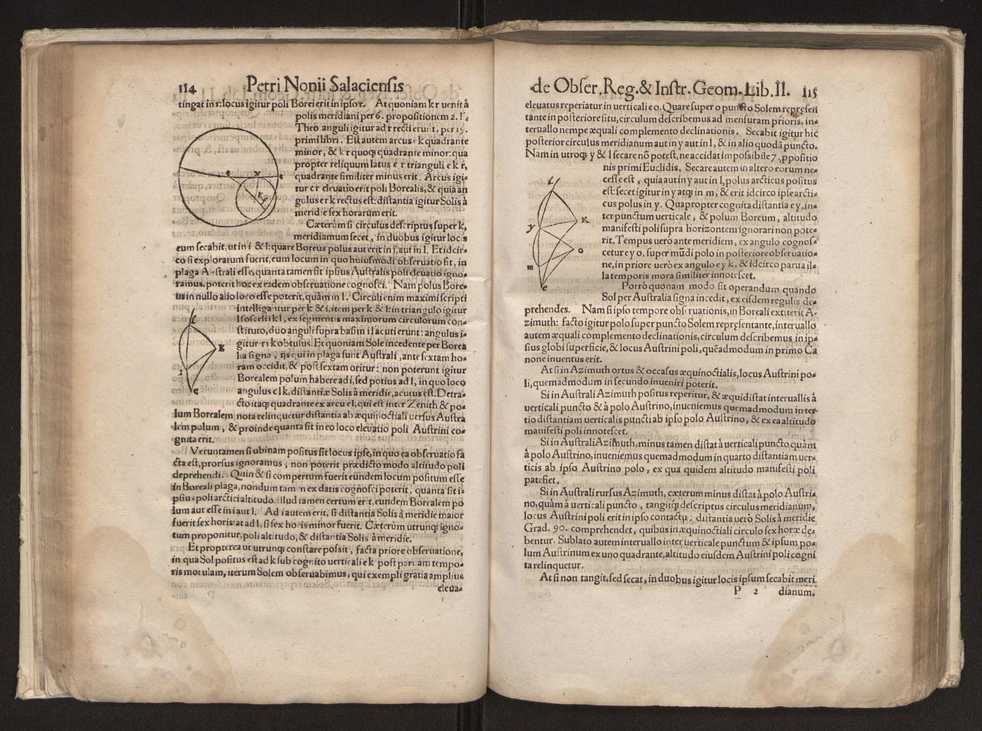 114 Petri Nonii Salaciensis
tingat in r: locus igitur poli Borei erit in ipso r. At quoniam k r uenit à
polis meridiani per 6. propositionem 2. li.
Theo anguli igitur ad r recti erunt, per 15.
primi libri. Est autem arcus e k quadrante
minor, & k r quoque quadrante minor: qua
propter reliquum latus e r trianguli e k r,
quadrante similiter minus erit. Arcus igi-
tur e r eleuatio erit poli Borealis, & quia an
gulus e r k rectus est: distantia igitur Solis à
meridie sex horarum erit.
Cæterùm si circulus descriptus super k,
meridianum secet, in duobus igitur locis
eum secabit, ut in i & l: quare Boreus polus aut erit in i, aut in l. Et idcir-
co si exploratum fuerit, eum locum in quo huiusmodi obseruatio fit, in
plaga Australi esse, quanta tamen sit ipsius Australis poli eleuatio igno-
ramus, poterit hoc ex eadem obseruatione cognosci. Nam polus Bore-
us in nullo alio loco esse poterit, quàm in l. Circuli enim maximi scripti
intelligantur per k & i, item per k & l: in triangulo igitur
Isosceli i k l, ex segmentis maximorum circulorum con-
stituto, duo anguli supra basim i l acuti erunt: angulus i-
gitur e i k obtusus. Et quoniam Sole incedente per Borea
lia signa, ijs qui in plaga sunt Australi, ante sextam ho-
ram occidit, & post sextam oritur: non poterunt igitur
Borealem polum habere ad i, sed potius ad l, in quo loco
angulus e l k, distantiæ Solis à meridie, acutus est. Detra-
cto itaque quadrante ex arcu e l, qui est inter Zenith & po-
lum Borealem nota relinquetur distantia ab æquinoctiali uersus Austra
lem polum, & proinde quanta sit in eo loco eleuatio poli Austrini co-
gnita erit.
Veruntamen si ubinam positus sit locus ipse, in quo ea obseruatio fa
cta est, prorsus ignoramus, non poterit prædicto modo altitudo poli
deprehendi. Quin & si compertum fuerit eundem locum positum esse
in Boreali plaga, nondum tamen ex datis cognosci poterit, quanta sit i-
psius poli arctici altitudo. illud tamen certum erit, eundem Borealem po
lum aut esse in i aut l. Ad i autem erit, si distantia Solis à meridie maior
fuerit sex horis: at ad l, si sex horis minor fuerit. Cæterùm utrunque igno-
tum proponitur, poli altitudo, & distantia Solis à meridie.
Et propterea ut utrunque constare possit, facta priore obseruatione,
in qua Sol positus est ad k sub cognito uerticali e k post paruam tempo-
ris morulam, iterum Solem obseruabimus, qui exempli gratia amplius
eleua-
de Obser. Reg. & Instr. Geom. Lib. II. 115
eleuatus reperiatur in uerticali e o. Quare super o puncto Solem repræsen
tante in posteriore situ, circulum describemus ad mensuram prioris, in-
teruallo nempe æquali complemento declinationis. Secabit igitur hic
posterior circulus meridianum aut in y aut in l, & in alio quodã puncto.
Nam in utroque y & l secare nõ potest, ne accidat impossibile 7. propositio
nis primi Euclidis. Secare autem in altero eorum ne-
cesse est, quia aut in y aut in l, polus arcticus positus
est: secet igitur in y atque in m, & erit idcirco ipse arcti-
cus polus in y. Quapropter cognita distantia e y, in-
ter punctum uerticale, & polum Boreum, altitudo
manifesti poli supra horizontem ignorari non pote-
rit. Tempus uero ante meridiem, ex angulo cognos-
cetur e y o, super mũdi polo in posteriore obseruatio-
ne, in priore uerò ex angulo e y k, & idcirco parua il-
la temporis mora similiter innotescet.
Porrò quonam modo sit operandum quando
Sol per Australia signa incedit, ex eisdem regulis de-
prehendes. Nam si ipso tempore obseruationis, in Boreali extiterit A-
zimuth: facto igitur polo super puncto Solem repręsentante, interuallo
autem æquali complemento declinationis, circulum describemus in ip-
sius globi superficie, & locus Austrini poli, quẽadmodum in primo Ca
none inuentus erit.
At si in Azimuth ortus & occasus æquinoctialis, locus Austrini po-
li, quemadmodum in secundo inueniri poterit.
Si in Australi Azimuth positus reperitur, & æquidistat interuallis à
verticali puncto & à polo Austrino, inueniemus quemadmodum in ter-
tio distantiam uerticalis puncti ab ipso polo Austrino, & ex ea altitudo
manifesti poli innotescet.
Si in Australi Azimuth, minus tamen distat à uerticali puncto, quàm
à polo Austrino, inueniemus quemadmodum in quarto distantiam uer-
ticis ab ipso Austrino polo, ex qua quidem altitudo manifesti poli
patefiet.
Si in Australi rursus Azimuth, cæterum minus distat à polo Austri-
no, quàm à uerticali puncto, tangitque descriptus circulus meridianum,
locus Austrini poli erit in ipso contactu, distantia uerò Solis à meridie
Grad. 90. comprehendet, quibus in æquinoctiali circulo sex horæ de-
bentur. Sublato autem interuallo inter uerticale punctum & ipsum po-
lum Austrinum ex uno quadrante, altitudo eiusdem Austrini poli cogni
ta relinquetur.
At si non tangit, sed secat, in duobus igitur locis ipsum secabit meri
P 2 dianum.